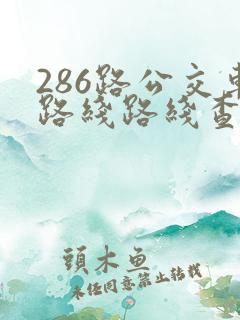 286路公交車
路线路线查
頭木鱼
未经同意禁止转载